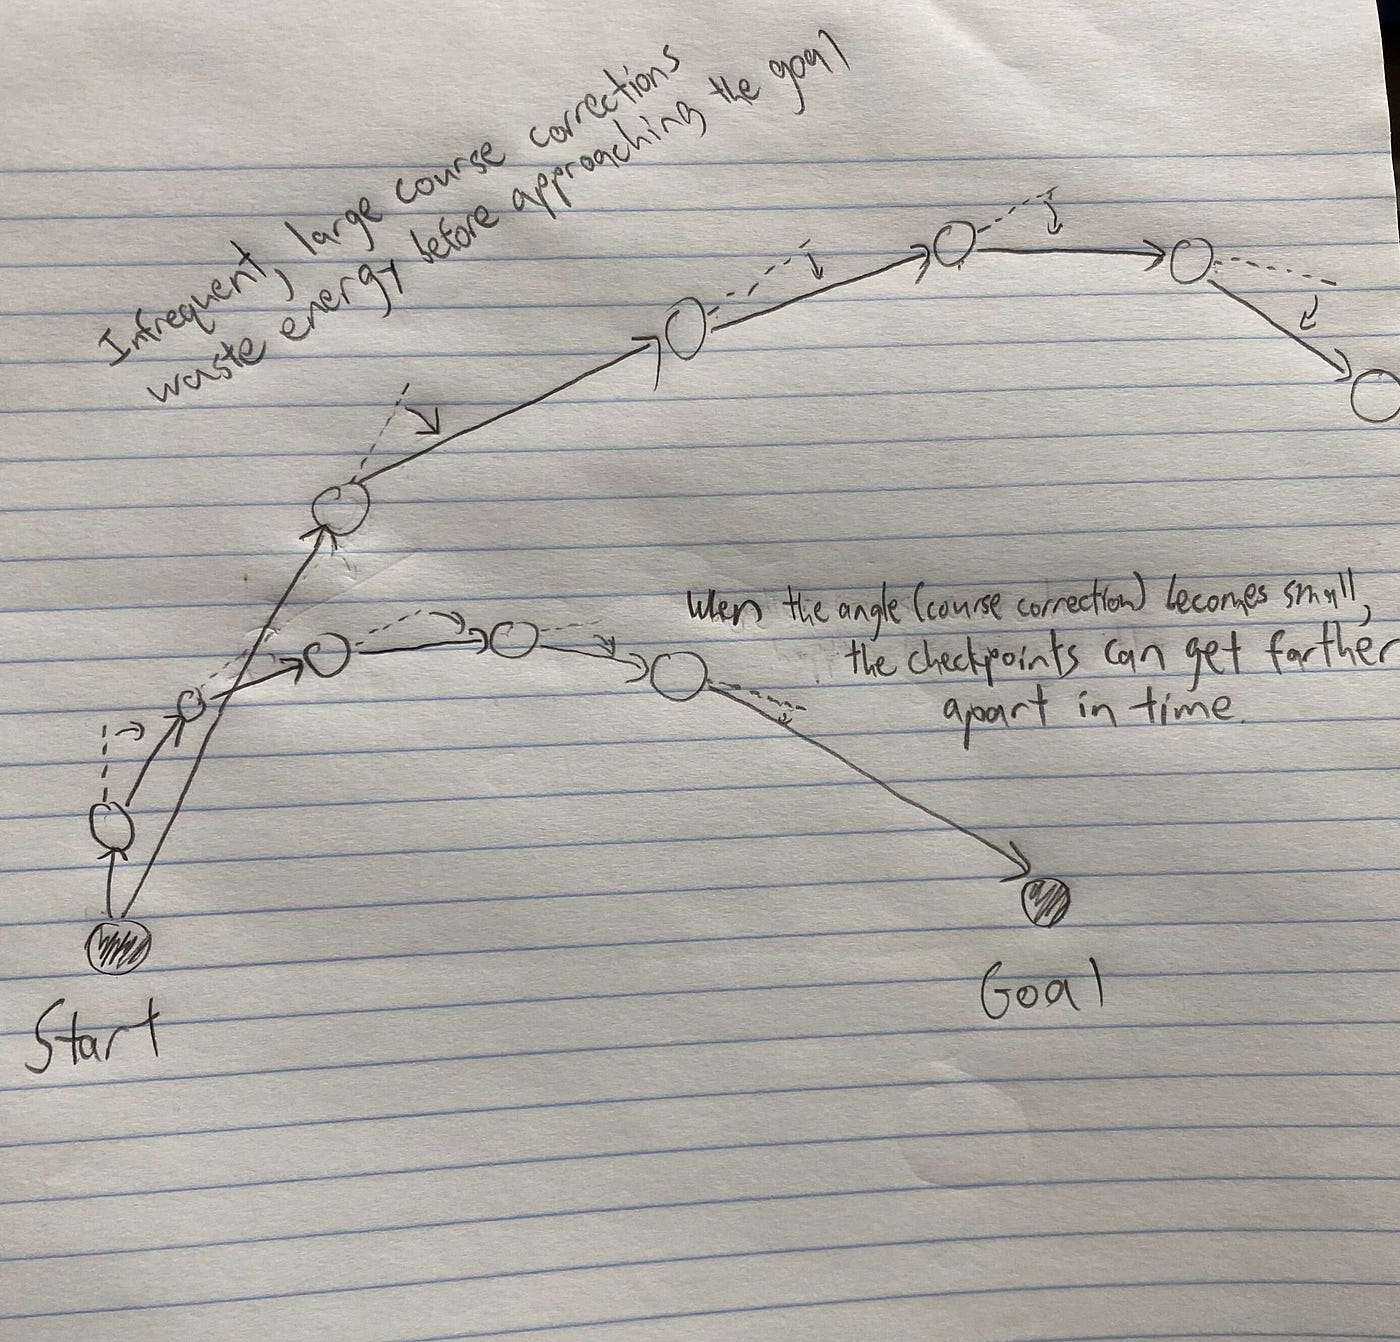 Infrequent, large course corrections
waste energy before approaching the goal
When the angle (course correction) becomes small,
the checkpoints can get farther
apart in time.
Goal
Start